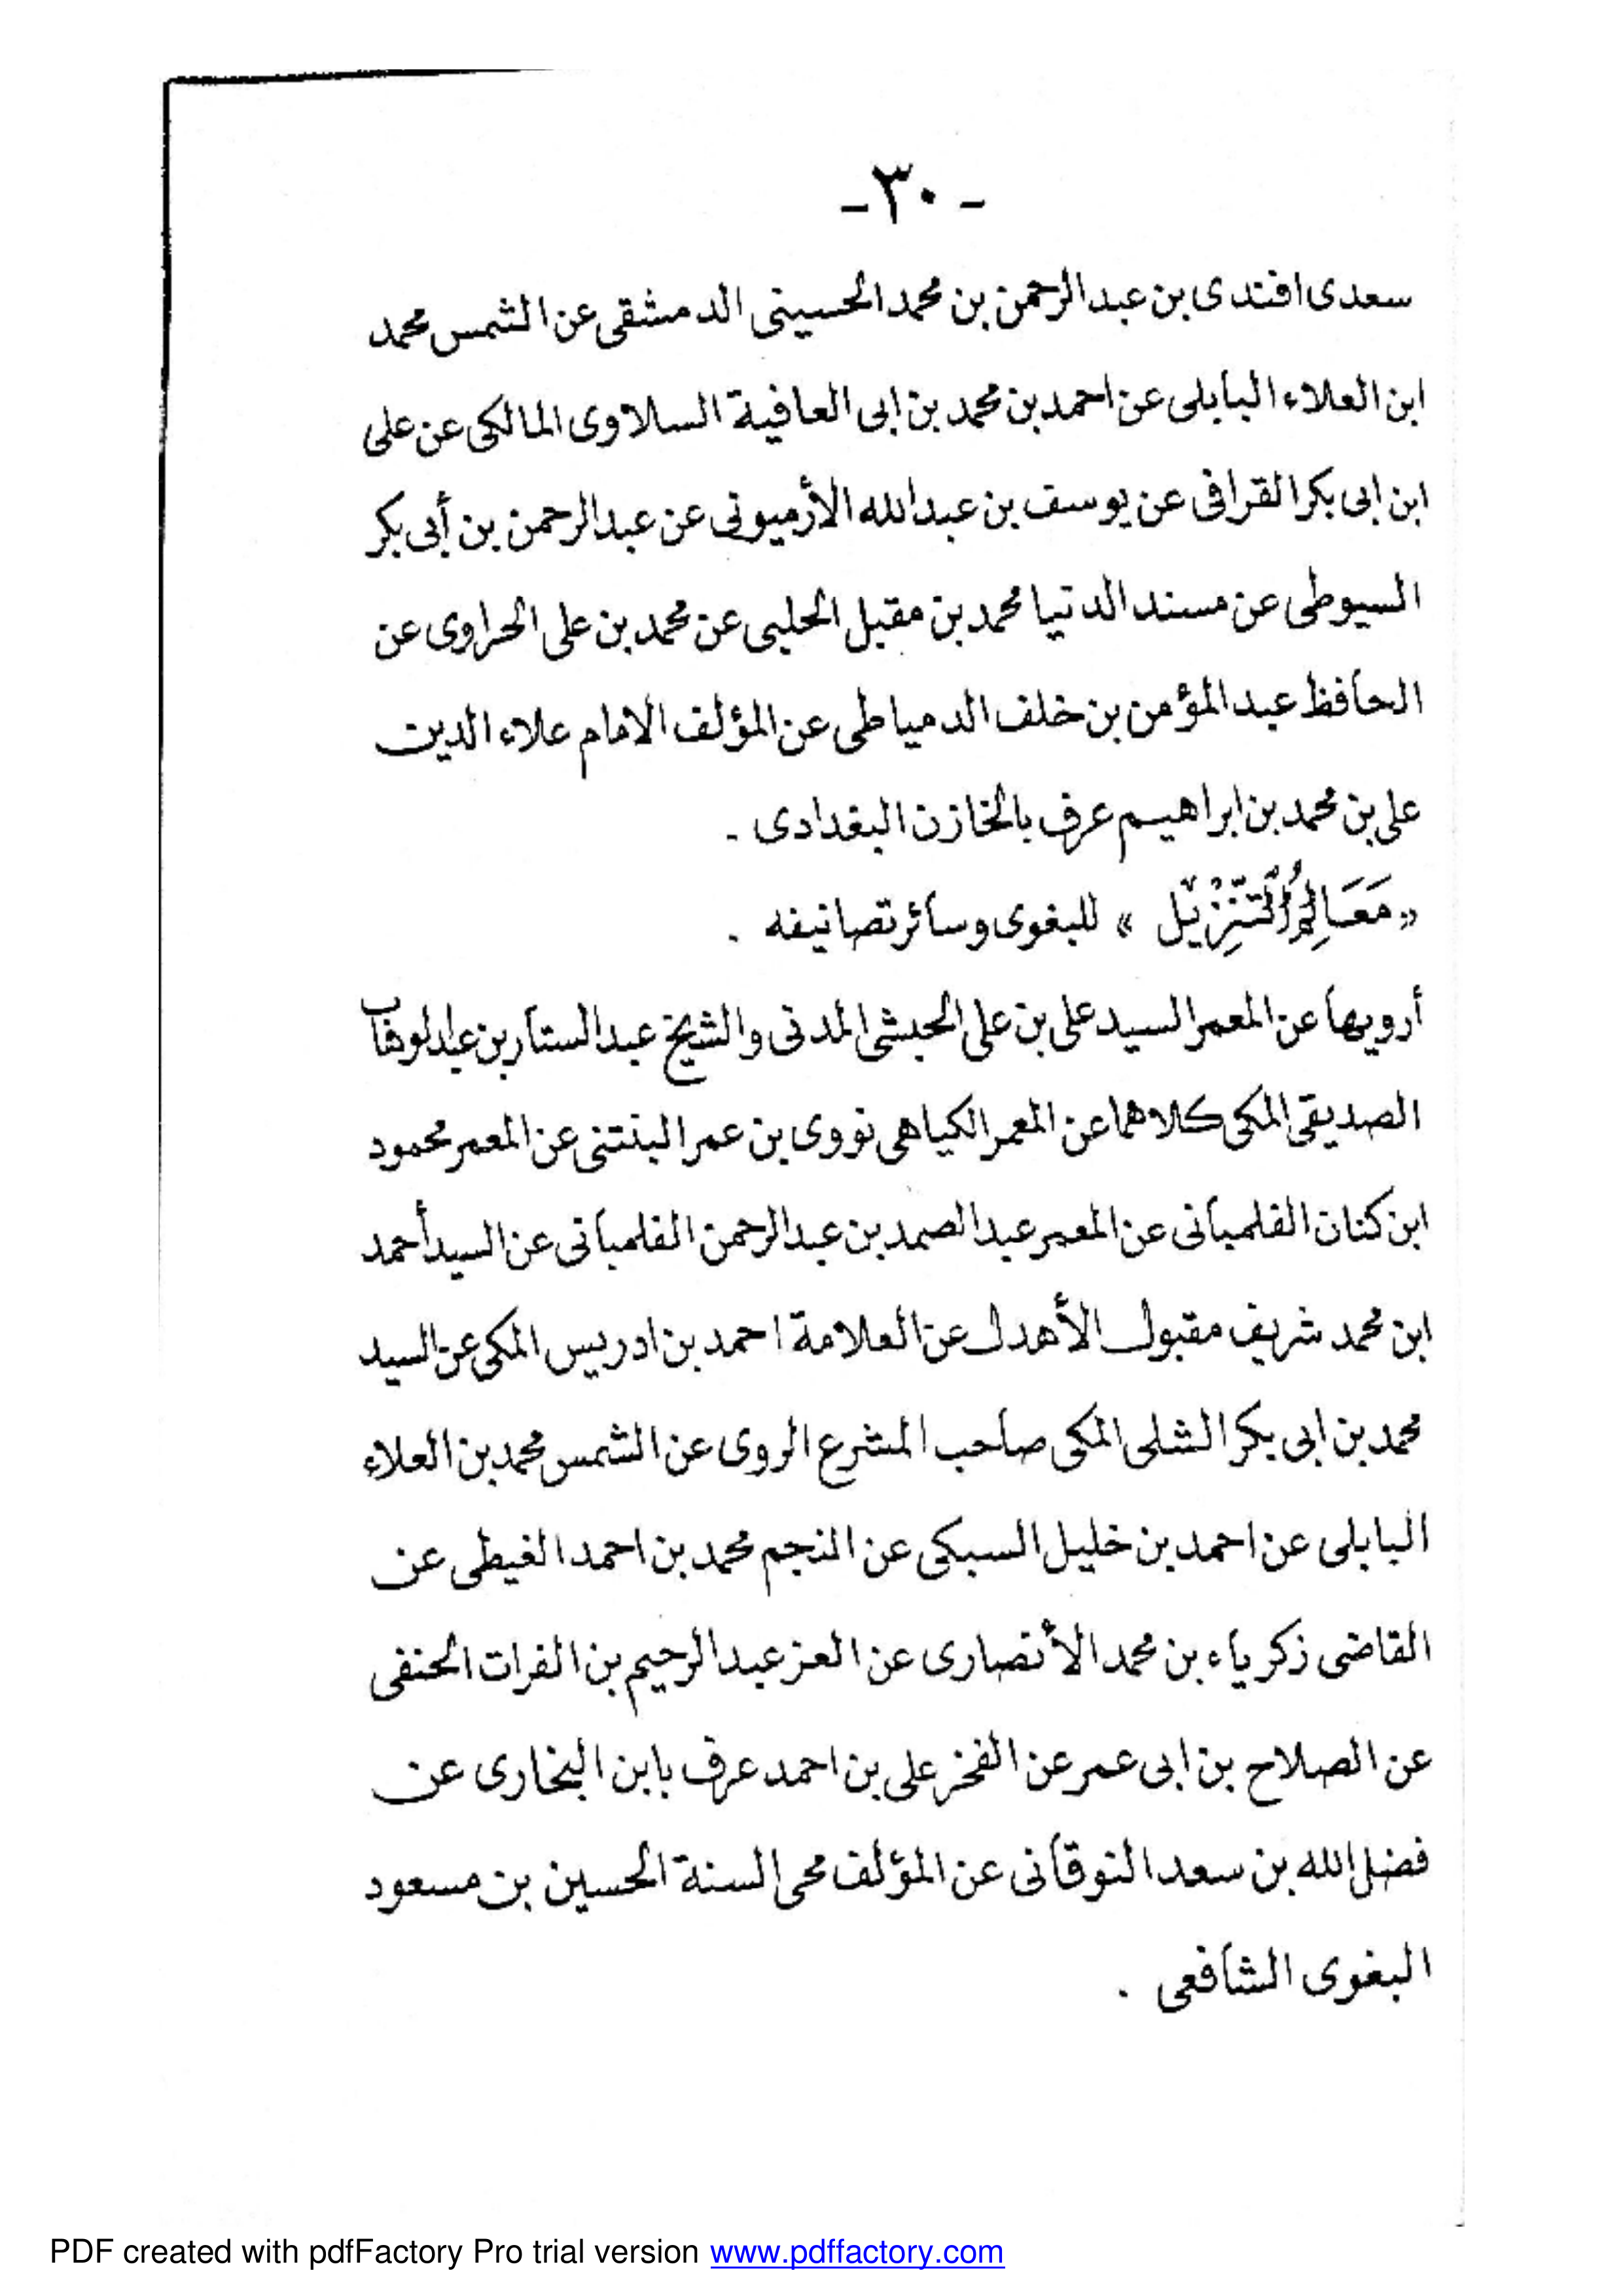 - ٣٠ -
سعدى افندى بن عبد الرحمن بن محمد الحسينى الدمشقى عن الشمس محمد
ابن العلاء البابلى عن احمد بن محمد بن ابى العافية السلاوى المالكى عن على
ابن ابى بكر القرافى عن يوسف بن عبد الله الأرميونى عن عبد الرحمن بن أبى بكر
السيوطى عن مسند الدنيا محمد بن مقبل الحلبى عن محمد بن على الحراوى عن
الحافظ عبد المؤمن بن خلف الدمياطى عن المؤلف الامام علاء الدين
على بن محمد بن ابراهيم عرف بالخازن البغدادى -
« مَعَالِمُ التَّنْزِيْل » للبغوى وسائر تصانيفه .
أرويها عن المعمر السيد على بن على الحبشى المدنى والشيخ عبد الستار بن عبد الوهاب
الصديقى المكى كلاهما عن المعمر الكياهى نووى بن عمر البنتنى عن المعمر محمود
ابن كنان الفلمبانى عن المعمر عبد الصمد بن عبد الرحمن الفلمبانى عن السيد أحمد
ابن محمد شريف مقبول الأهدل عن العلامة احمد بن ادريس المكى عن السيد
محمد بن ابى بكر الشلى المكى صاحب المشرع الروى عن الشمس محمد بن العلاء
البابلى عن احمد بن خليل السبكى عن النجم محمد بن احمد الغيطى عن
القاضى زكرياء بن محمد الأنصارى عن العز عبد الرحيم بن الفرات الحنفى
عن الصلاح بن ابى عمر عن الفخر على بن احمد عرف بابن البخارى عن
فضل الله بن سعد النوقانى عن المؤلف محى السنة الحسين بن مسعود
البغوى الشافعى .
PDF created with pdfFactory Pro trial version www.pdffactory.com